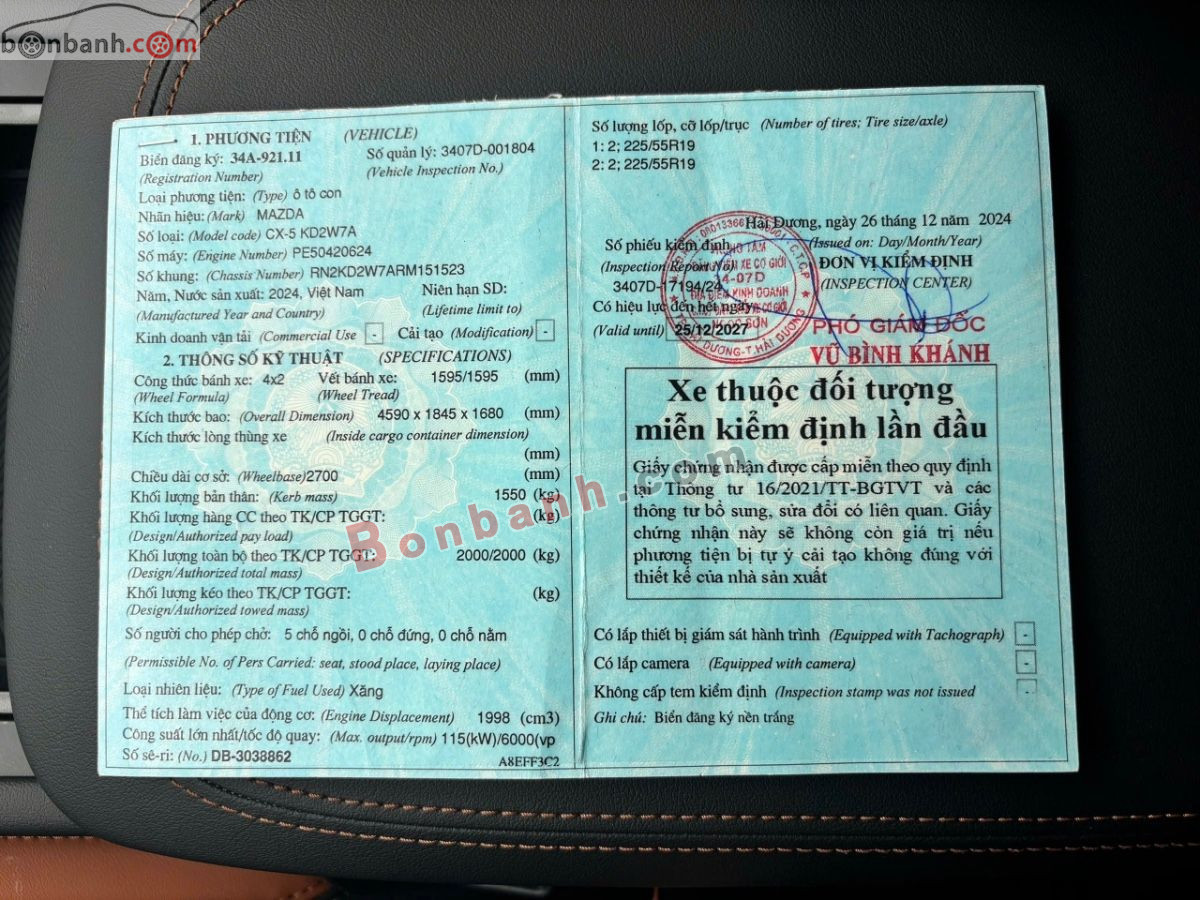 bonbanh.com
1. PHƯƠNG TIỆN (VEHICLE)
Biển đăng ký: 34A-921.11 Số quản lý: 3407D-001804
(Registration Number) (Vehicle Inspection No.)
Loại phương tiện: (Type) ô tô con
Nhãn hiệu: (Mark) MAZDA
Số loại: (Model code) CX-5 KD2W7A
Số máy: (Engine Number) PE50420624
Số khung: (Chassis Number) RN2KD2W7ARM151523
Năm, Nước sản xuất: 2024, Việt Nam Niên hạn SD:
(Manufactured Year and Country) (Lifetime limit to)
Kinh doanh vận tải (Commercial Use) - Cải tạo (Modification) -
2. THÔNG SỐ KỸ THUẬT (SPECIFICATIONS)
Công thức bánh xe: 4x2 Vết bánh xe: 1595/1595 (mm)
(Wheel Formula) (Wheel Tread)
Kích thước bao: (Overall Dimension) 4590 x 1845 x 1680 (mm)
Kích thước lòng thùng xe (Inside cargo container dimension)
(mm)
Chiều dài cơ sở: (Wheelbase) 2700 (mm)
Khối lượng bản thân: (Kerb mass) 1550 (kg)
Khối lượng hàng CC theo TK/CP TGGT: (kg)
(Design/Authorized pay load)
Khối lượng toàn bộ theo TK/CP TGGT: 2000/2000 (kg)
(Design/Authorized total mass)
Khối lượng kéo theo TK/CP TGGT: (kg)
(Design/Authorized towed mass)
Số người cho phép chở: 5 chỗ ngồi, 0 chỗ đứng, 0 chỗ nằm
(Permissible No. of Pers Carried: seat, stood place, laying place)
Loại nhiên liệu: (Type of Fuel Used) Xăng
Thể tích làm việc của động cơ: (Engine Displacement) 1998 (cm3)
Công suất lớn nhất/tốc độ quay: (Max. output/rpm) 115(kW)/6000(vp
Số sê-ri: (No.) DB-3038862 A8EFF3C2
Số lượng lốp, cỡ lốp/trục (Number of tires; Tire size/axle)
1: 2; 225/55R19
2: 2; 225/55R19
Hải Dương, ngày 26 tháng 12 năm 2024
Số phiếu kiểm định (Issued on: Day/Month/Year)
(Inspection Report No) ĐƠN VỊ KIỂM ĐỊNH
3407D-17194/24 (INSPECTION CENTER)
Có hiệu lực đến hết ngày
(Valid until) 25/12/2027
PHÓ GIÁM ĐỐC
VŨ BÌNH KHÁNH
Xe thuộc đối tượng
miễn kiểm định lần đầu
Giấy chứng nhận được cấp miễn theo quy định
tại Thông tư 16/2021/TT-BGTVT và các
thông tư bổ sung, sửa đổi có liên quan. Giấy
chứng nhận này sẽ không còn giá trị nếu
phương tiện bị tự ý cải tạo không đúng với
thiết kế của nhà sản xuất
Có lắp thiết bị giám sát hành trình (Equipped with Tachograph) -
Có lắp camera (Equipped with camera) -
Không cấp tem kiểm định (Inspection stamp was not issued -
Ghi chú: Biển đăng ký nền trắng
Bonbanh.com